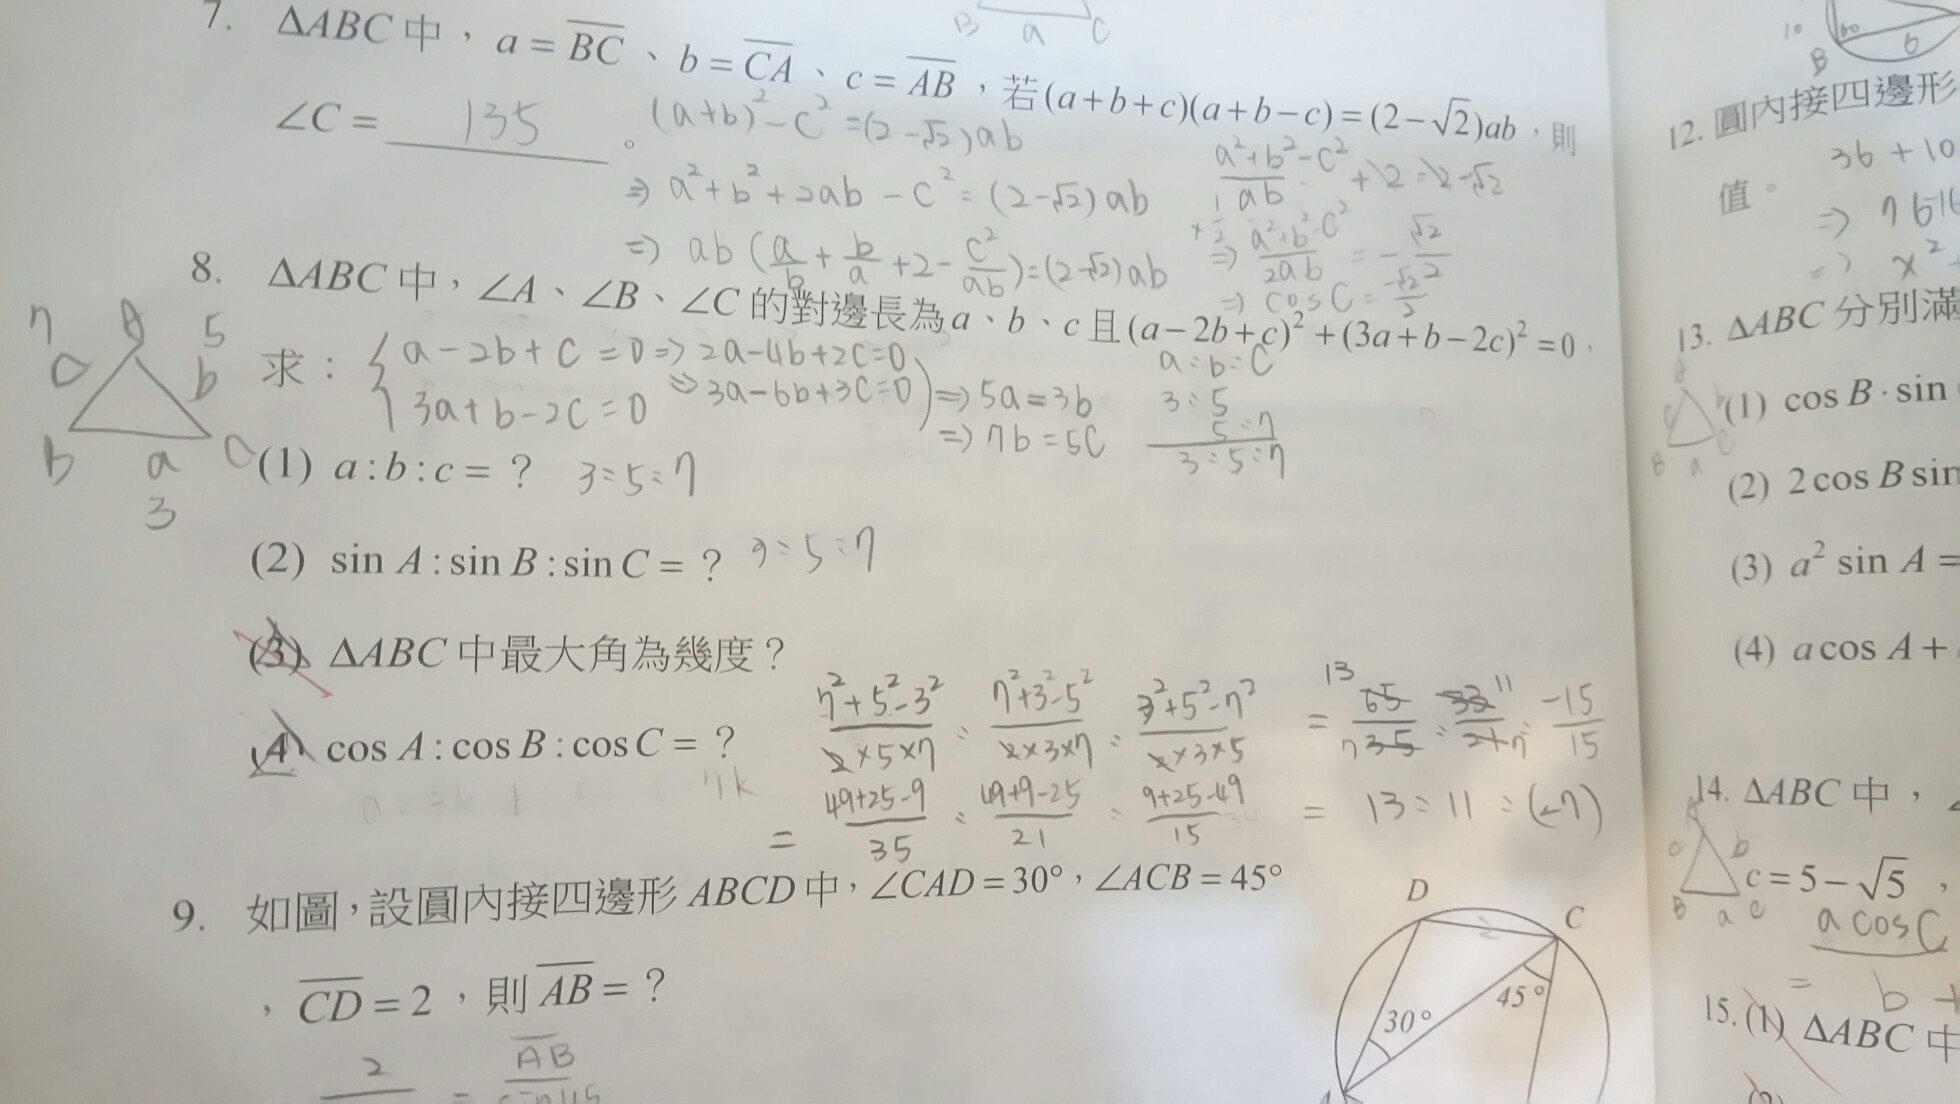 B a C
7. ΔABC 中，a = BC、b = CA、c = AB，若(a+b+c)(a+b−c)=(2−√2)ab，則
∠C = 135 。
(a+b)²−c²=(2−√2)ab
⇒ a²+b²+2ab−c²=(2−√2)ab
a²+b²−c² / ab + 2 = 2−√2
⇒ ab(a/b + b/a + 2 − c²/ab)=(2−√2)ab
×1/2 ⇒ a²+b²−c² / 2ab = −√2/2
⇒ cosC = −√2/2
8. ΔABC 中，∠A、∠B、∠C 的對邊長為 a、b、c 且 (a−2b+c)²+(3a+b−2c)²=0，
求：
{ a−2b+c=0 ⇒ 2a−4b+2c=0
⇒ 3a−6b+3c=0
3a+b−2c=0
⇒ 5a=3b
⇒ 7b=5c
a:b:c
3:5
5:7
3:5:7
7 A 5
c b
b a C
3
(1) a:b:c = ? 3:5:7
(2) sin A : sin B : sin C = ? 3:5:7
(3) ΔABC 中最大角為幾度？
(4) cos A : cos B : cos C = ?
7²+5²−3² / 2×5×7 : 7²+3²−5² / 2×3×7 : 3²+5²−7² / 2×3×5
= 13 65 / 7 35 : 33 11 / 21 7 : −15 / 15
= 49+25−9 / 35 : 49+9−25 / 21 : 9+25−49 / 15
= 13:11:(−7)
7k
9. 如圖，設圓內接四邊形 ABCD 中，∠CAD = 30°，∠ACB = 45°
，CD = 2，則 AB = ?
2 = AB / sin45
D C
2
30° 45°
A
10 60 6
B
12. 圓內接四邊形
值。
36 + 10
⇒ 76
⇒ x²
13. ΔABC 分別滿
(1) cos B · sin
(2) 2 cos B sin
(3) a² sin A =
(4) a cos A +
14. ΔABC 中，
c = 5 − √5，
a cosC
= b +
15. (1) ΔABC 中